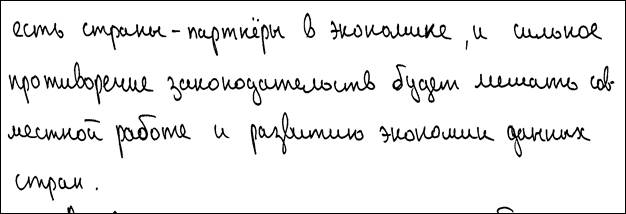 есть страны-партнёры в экономике, и сильное
противоречие законодательств будет мешать сов-
местной работе и развитию экономик данных
стран.